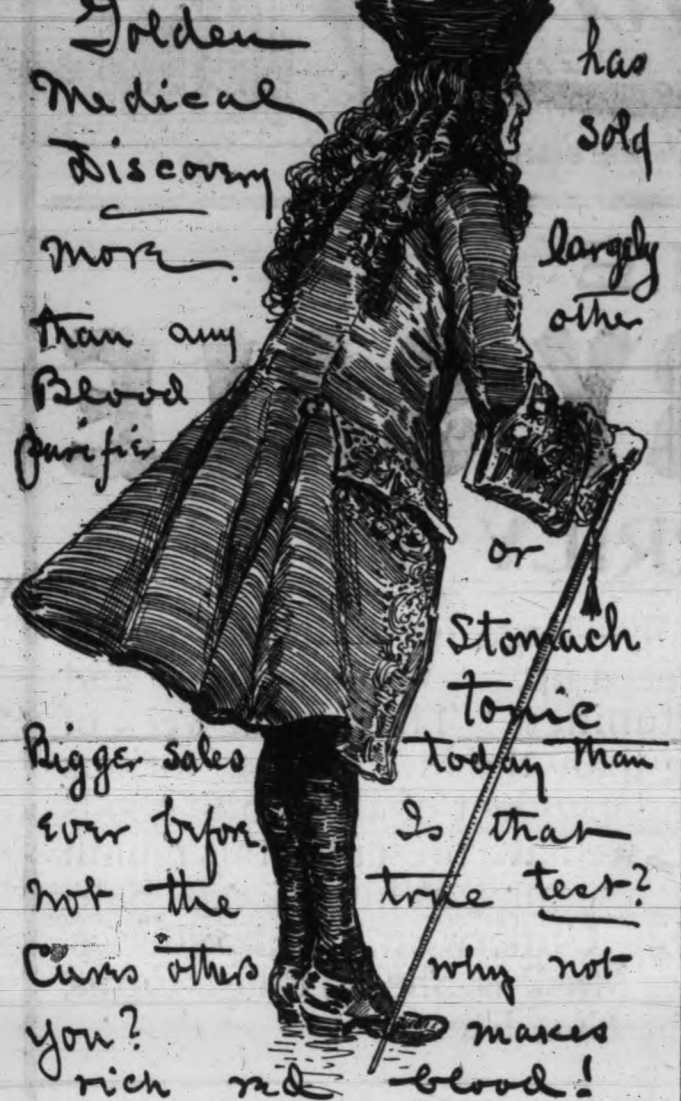 Golden has
Medical sold
Discovery
more largely
than any other
Blood
purifier
or
Stomach
tonic
Bigger sales today than
ever before. Is that
not the true test?
Cures others why not
you? makes
rich red blood!